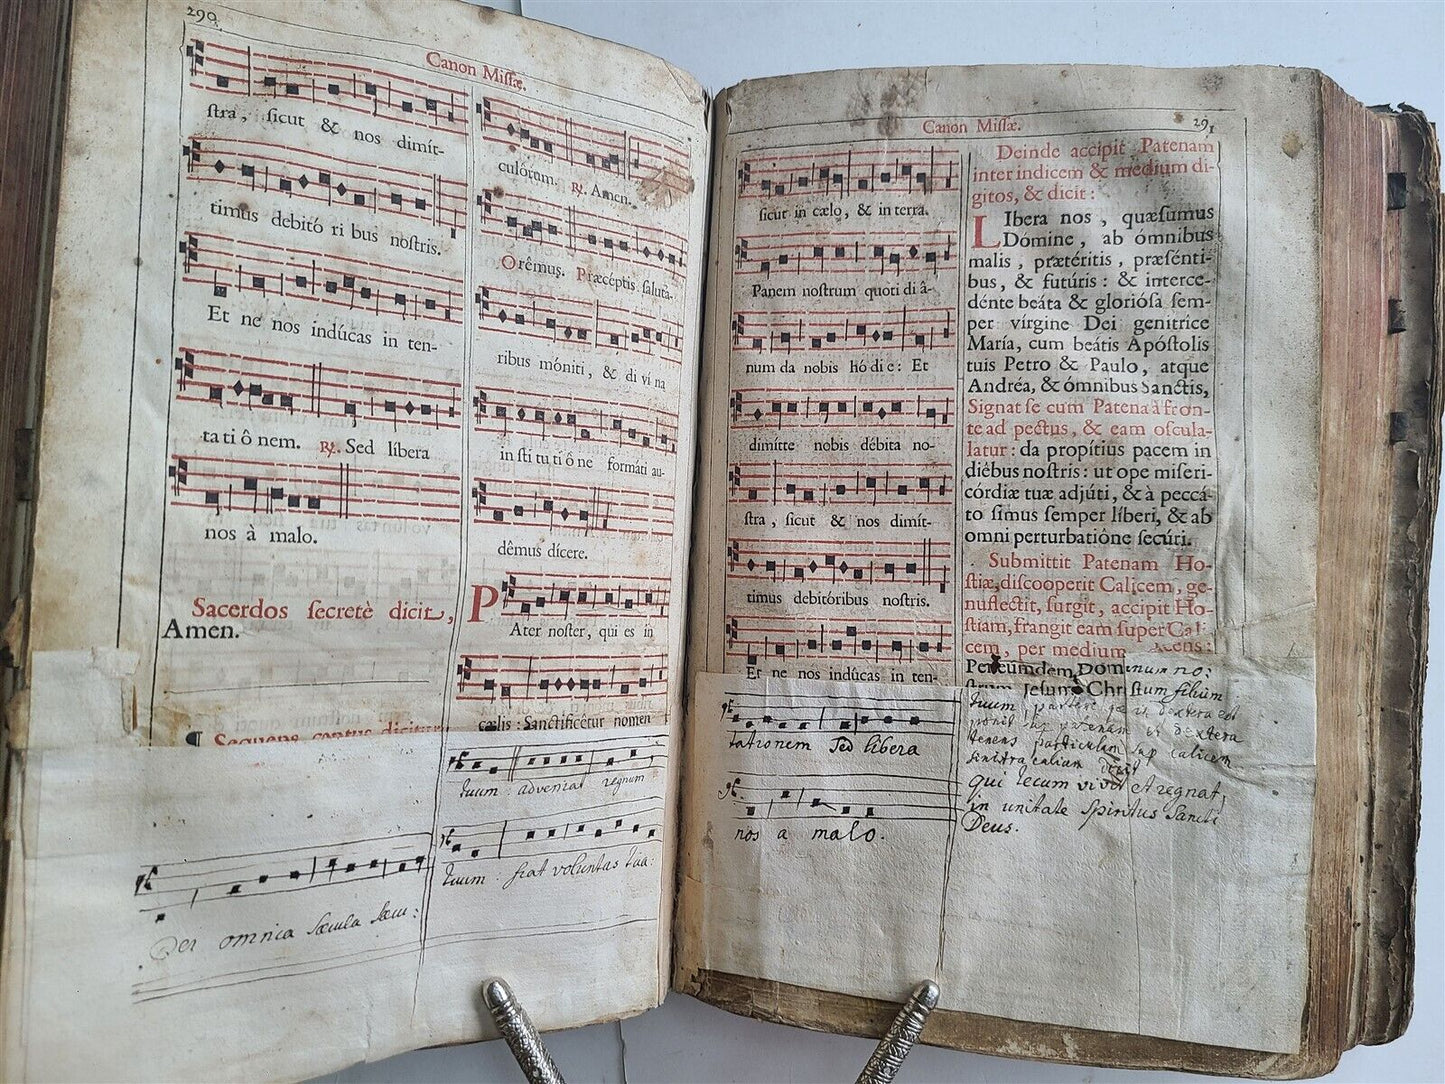 290
Canon Miſſæ.
ſtra, ſicut & nos dimít-
timus debitó ri bus noſtris.
Et ne nos indúcas in ten-
ta ti ô nem. ℟. Sed líbera
nos à malo.
Sacerdos ſecretè dicit,
Amen.
¶ Sequens cantus dicitur
Per omnia sæcula sæcu:
culórum. ℟. Amen.
Orêmus. Præcéptis ſaluta-
ribus móniti, & di ví na
in ſti tu ti ô ne formáti au-
dêmus dícere.
PAter noſter, qui es in
cælis: Sanctificêtur nomen
tuum: adveniat regnum
tuum. fiat voluntas tua:
Canon Miſſæ.
291
ſicut in cælo, & in terra.
Panem noſtrum quoti di â-
num da nobis hó di e: Et
dimítte nobis débita no-
ſtra, ſicut & nos dimít-
timus debitóribus noſtris.
Et ne nos indúcas in ten-
tationem Sed libera
nos a malo.
Deinde accipit Patenam
inter indicem & medium di-
gitos, & dicit:
LIbera nos, quæſumus
Dómine, ab ómnibus
malis, prætéritis, præſénti-
bus, & futúris: & interce-
dénte beáta & glorióſa ſem-
per vírgine Dei genitrice
María, cum beátis Apóſtolis
tuis Petro & Paulo, atque
Andréa, & ómnibus Sanctis,
Signat ſe cum Patena à fron-
te ad pectus, & eam oſcula-
latur: da propítius pacem in
diébus noſtris: ut ope miſeri-
córdiæ tuæ adjúti, & à peccá-
to ſimus ſemper líberi, & ab
omni perturbatiône ſecúri.
Submittit Patenam Ho-
ſtiæ, diſcooperit Calicem, ge-
nuflectit, ſurgit, accipit Ho-
ſtiam, frangit eam ſuper Cali-
cem, per medium dicens:
Per eúmdem Dominum no:
strum Jesum Christum filium
tuum, partem quæ in dextera est
ponit sup patenam in dextera
tenens particulam sup calicem
sinistra calicem dicit
qui tecum vivit et regnat,
in unitate Spiritus Sancti
Deus.